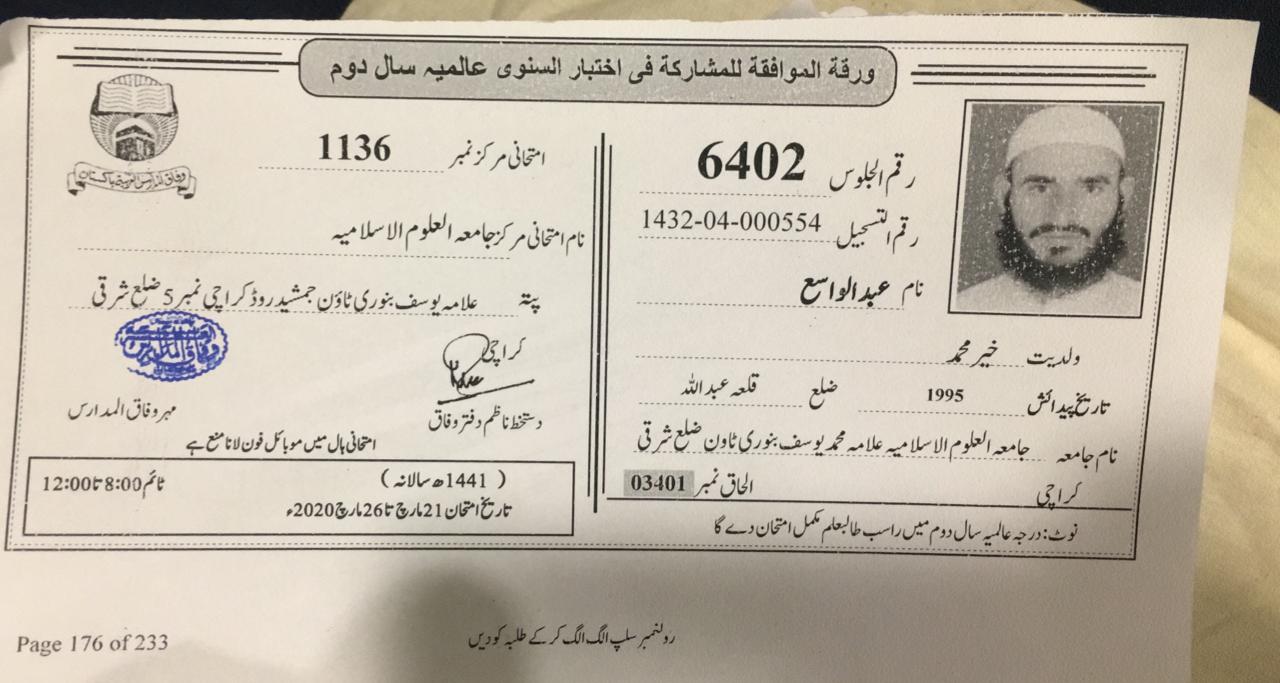 ورقة الموافقة للمشاركة فى اختبار السنوى عالمیہ سال دوم
رقم الجلوس 6402
رقم التسجیل 1432-04-000554
نام عبدالواسع
ولدیت خیر محمد
تاریخ پیدائش 1995 ضلع قلعہ عبداللہ
نام جامعہ جامعہ العلوم الاسلامیہ علامہ محمد یوسف بنوری ٹاون ضلع شرقی
کراچی
الحاق نمبر 03401
نوٹ: درجہ عالمیہ سال دوم میں راسب طالبعلم مکمل امتحان دے گا
وفاق المدارس العربیہ پاکستان
امتحانی مرکز نمبر 1136
نام امتحانی مرکز جامعہ العلوم الاسلامیہ
پتہ علامہ یوسف بنوری ٹاؤن جمشید روڈ کراچی نمبر 5 ضلع شرقی
کراچی
دستخط ناظم دفتر وفاق
مہر وفاق المدارس
امتحانی ہال میں موبائل فون لانا منع ہے
( 1441ھ سالانہ )
ٹائم 8:00 تا 12:00
تاریخ امتحان 21 مارچ تا 26 مارچ 2020ء
رولنمبر سلپ الگ الگ کر کے طلبہ کو دیں
Page 176 of 233